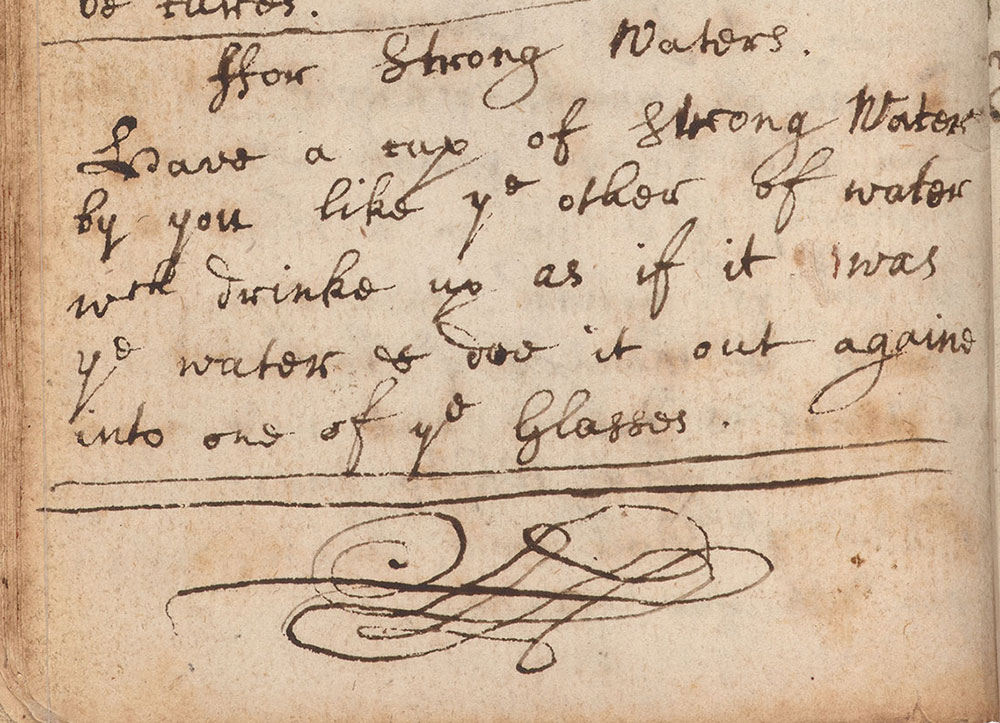 be turnes.
ffor Strong Waters.
Have a cup of Strong Water
by you like ye other of water
wch drinke up as if it was
ye water & doe it out againe
into one of ye Glasses.